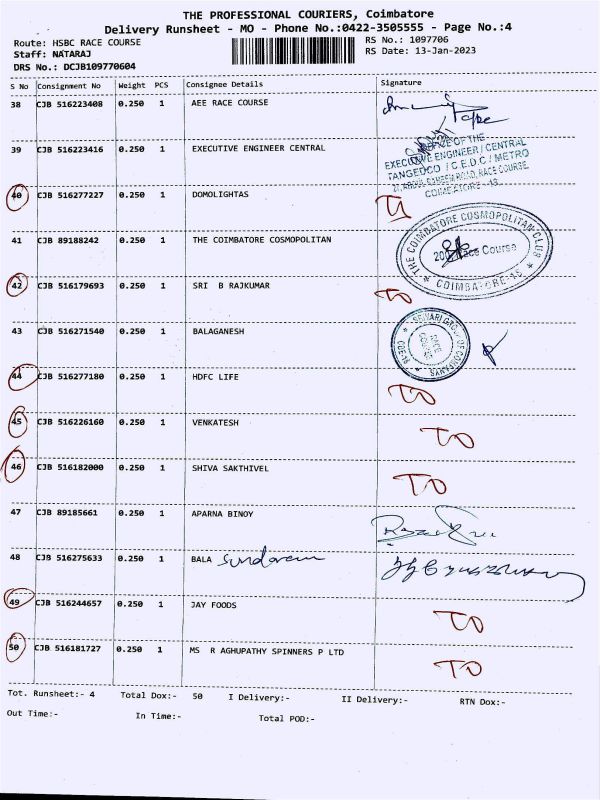 THE PROFESSIONAL COURIERS, Coimbatore
Delivery Runsheet - MO - Phone No.:0422-3505555 - Page No.:4
Route: HSBC RACE COURSE RS No.: 1097706
Staff: NATARAJ RS Date: 13-Jan-2023
DRS No.: DCJB109770604
S No Consignment No Weight PCS Consignee Details Signature
38 CJB 516223408 0.250 1 AEE RACE COURSE
39 CJB 516223416 0.250 1 EXECUTIVE ENGINEER CENTRAL
OFFICE OF THE
EXECUTIVE ENGINEER / CENTRAL
TANGEDCO / C.E.D.C / METRO
RACE COURSE,
COIMBATORE - 18.
40 CJB 516277227 0.250 1 DOMOLIGHTAS
41 CJB 89188242 0.250 1 THE COIMBATORE COSMOPOLITAN
THE COIMBATORE COSMOPOLITAN CLUB
Race Course
COIMBATORE-18
42 CJB 516179693 0.250 1 SRI B RAJKUMAR TO
43 CJB 516271540 0.250 1 BALAGANESH
RACE COURSE
44 CJB 516277180 0.250 1 HDFC LIFE TO
45 CJB 516226160 0.250 1 VENKATESH TO
46 CJB 516182000 0.250 1 SHIVA SAKTHIVEL TO
47 CJB 89185661 0.250 1 APARNA BINOY
48 CJB 516275633 0.250 1 BALA Sundaram
49 CJB 516244657 0.250 1 JAY FOODS TO
50 CJB 516181727 0.250 1 MS R AGHUPATHY SPINNERS P LTD TO
Tot. Runsheet:- 4 Total Dox:- 50 I Delivery:- II Delivery:- RTN Dox:-
Out Time:- In Time:- Total POD:-